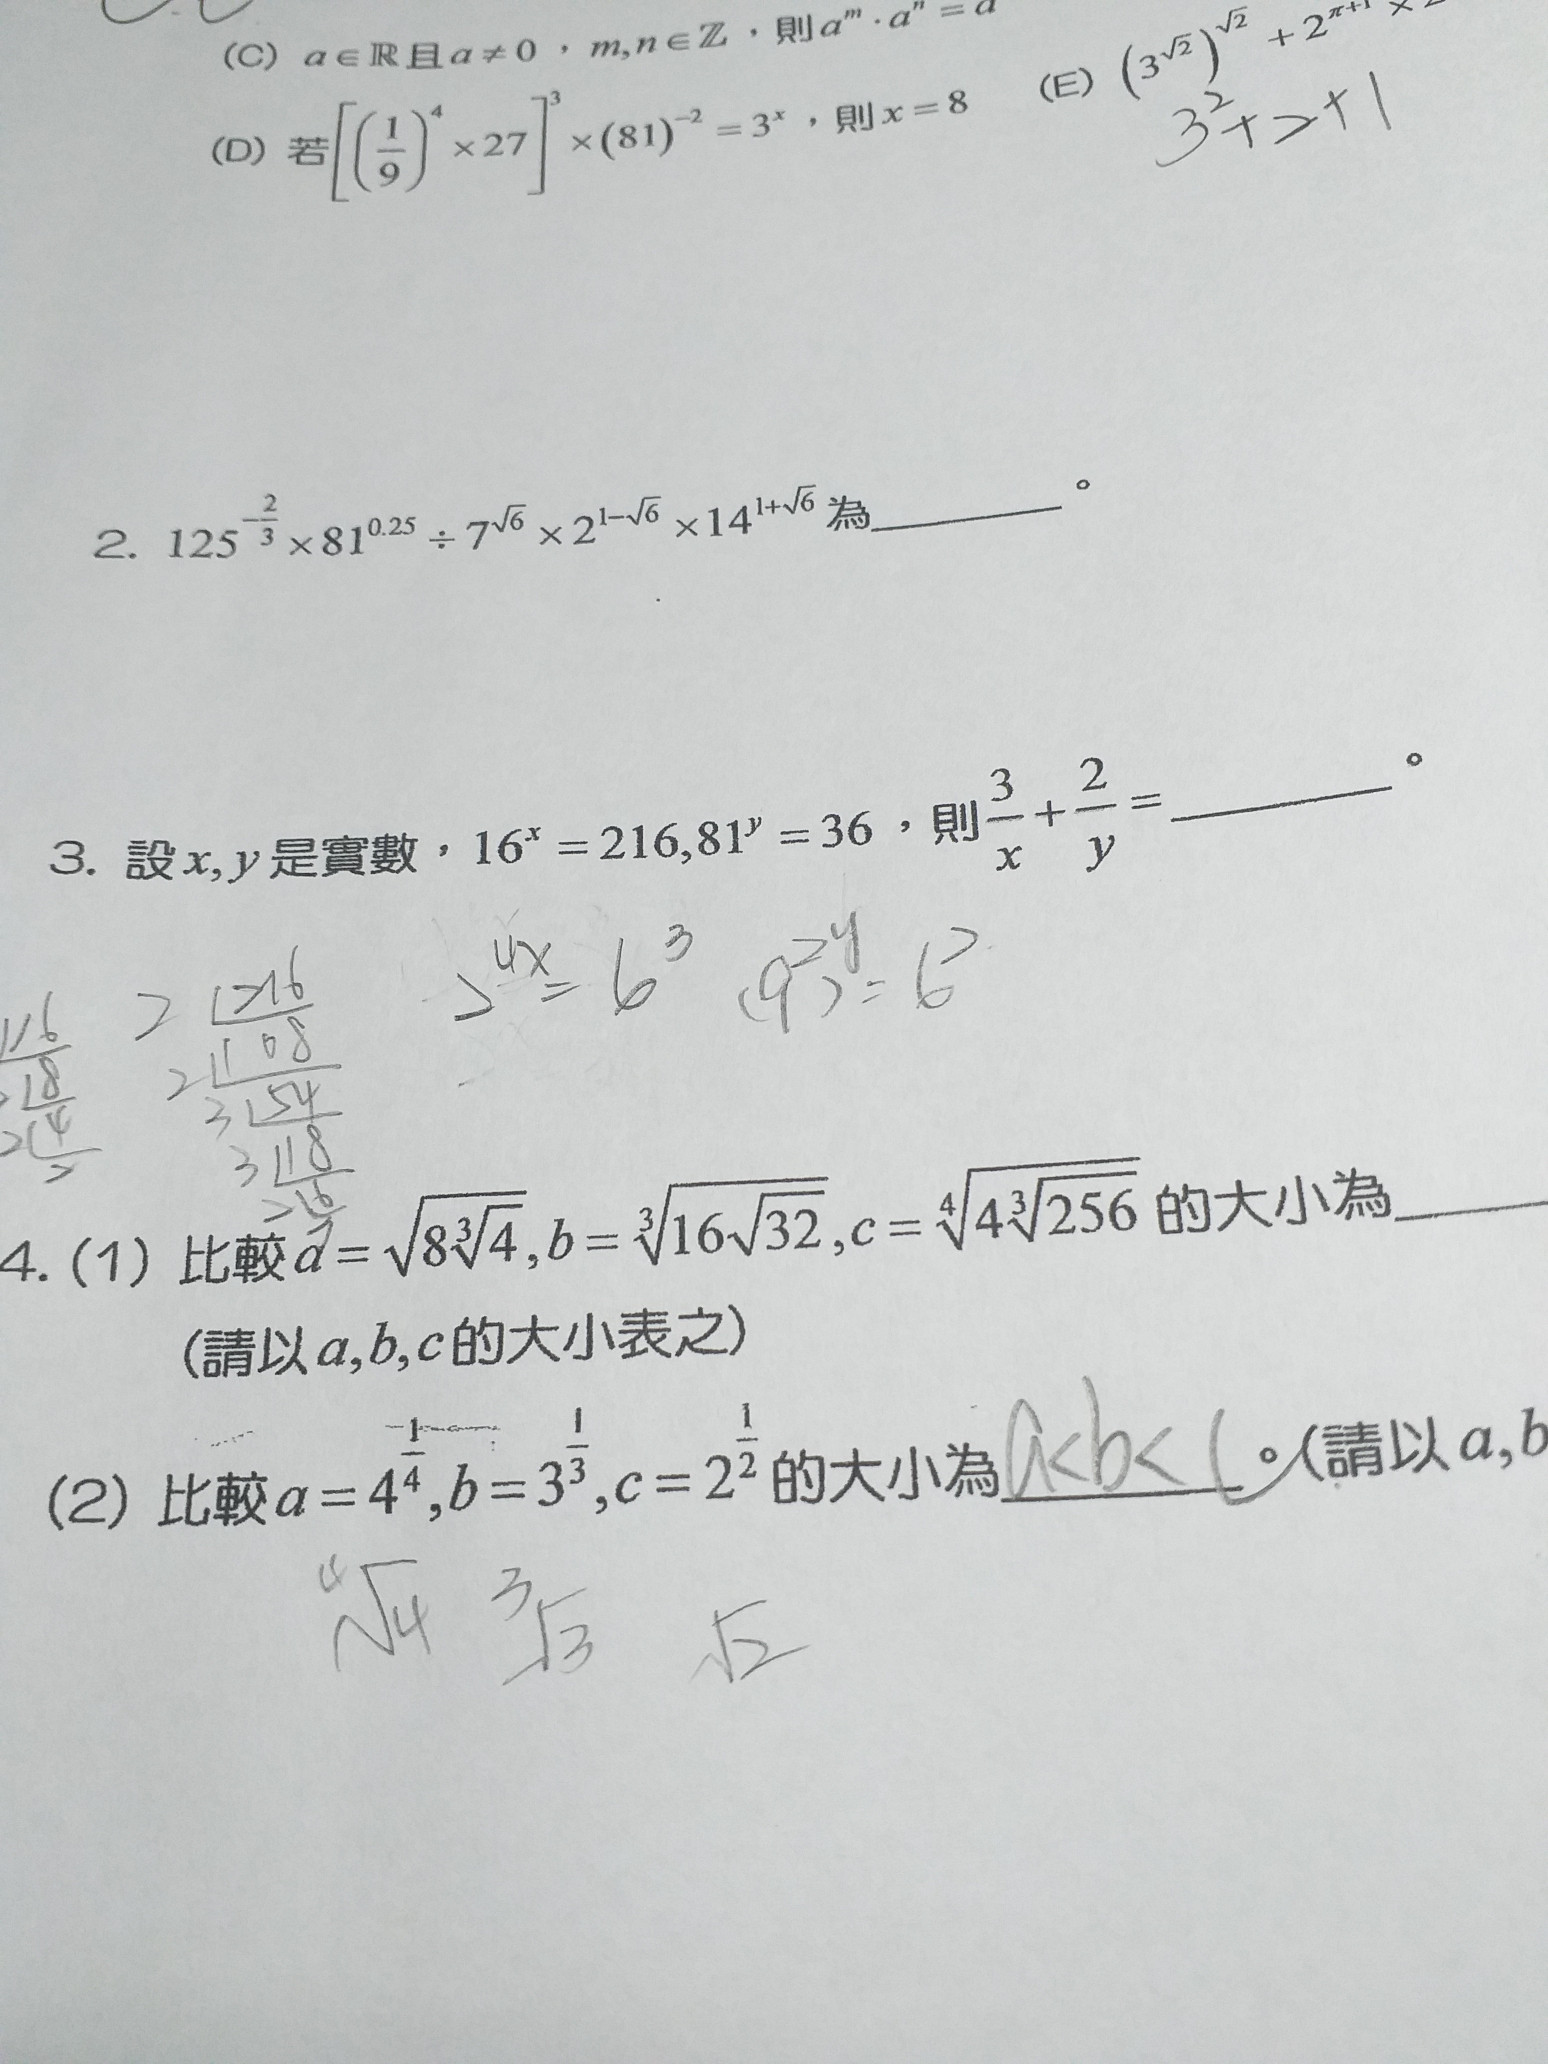 (C) a∈ℝ且a≠0，m,n∈ℤ，則aᵐ·aⁿ=a
(D) 若[(1/9)⁴×27]³×(81)⁻²=3ˣ，則x=8
(E) (3^√2)^√2+2^(π+1)×2
3²+2+1
2. 125^(-2/3)×81^0.25÷7^√6×2^(1-√6)×14^(1+√6)為______。
3. 設x,y是實數，16ˣ=216,81ʸ=36，則3/x+2/y=______。
2^4x=6³ (9²)^y=6²
2 216
2 108
3 54
3 18
2 6
16
2 8
2 4
2
4. (1) 比較a=√(8∛4),b=∛(16√32),c=∜(4∛256)的大小為______
(請以a,b,c的大小表之)
(2) 比較a=4^(1/4),b=3^(1/3),c=2^(1/2)的大小為a<b<c。(請以a,b
∜4 ∛3 √2